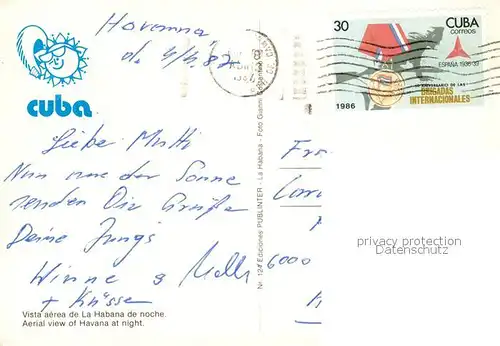 Havanna
d. 4/4.87
cuba
Liebe Mutti
Nun nur der Sonne
senden Dir Grüße
Deine Jungs
Winne &
+ Küsse
Vista aérea de La Habana de noche.
Aerial view of Havana at night.
Nr. 124 Ediciones PUBLINTER - La Habana - Foto Gianni
30
CUBA
correos
ESPAÑA 1936-39
ANIVERSARIO DE LAS
BRIGADAS
INTERNACIONALES
1986
6000
privacy protection
Datenschutz